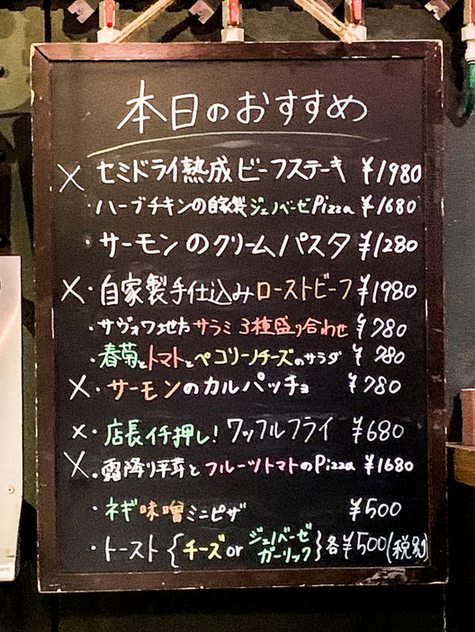 本日のおすすめ
× セミドライ熟成ビーフステーキ ¥1980
・ハーブチキンの自家製ジェノベーゼPizza ¥1680
・サーモンのクリームパスタ ¥1280
×・自家製手仕込みローストビーフ ¥1980
・サヴォワ地方サラミ3種盛り合わせ ¥780
・春菊とトマトとペコリーノチーズのサラダ ¥780
×・サーモンのカルパッチョ ¥780
×・店長イチ押し!ワッフルフライ ¥680
×・霜降り平茸とフルーツトマトのPizza ¥1680
・ネギ味噌ミニピザ ¥500
・トースト{チーズor ジェノベーゼ ガーリック}各¥500(税別)